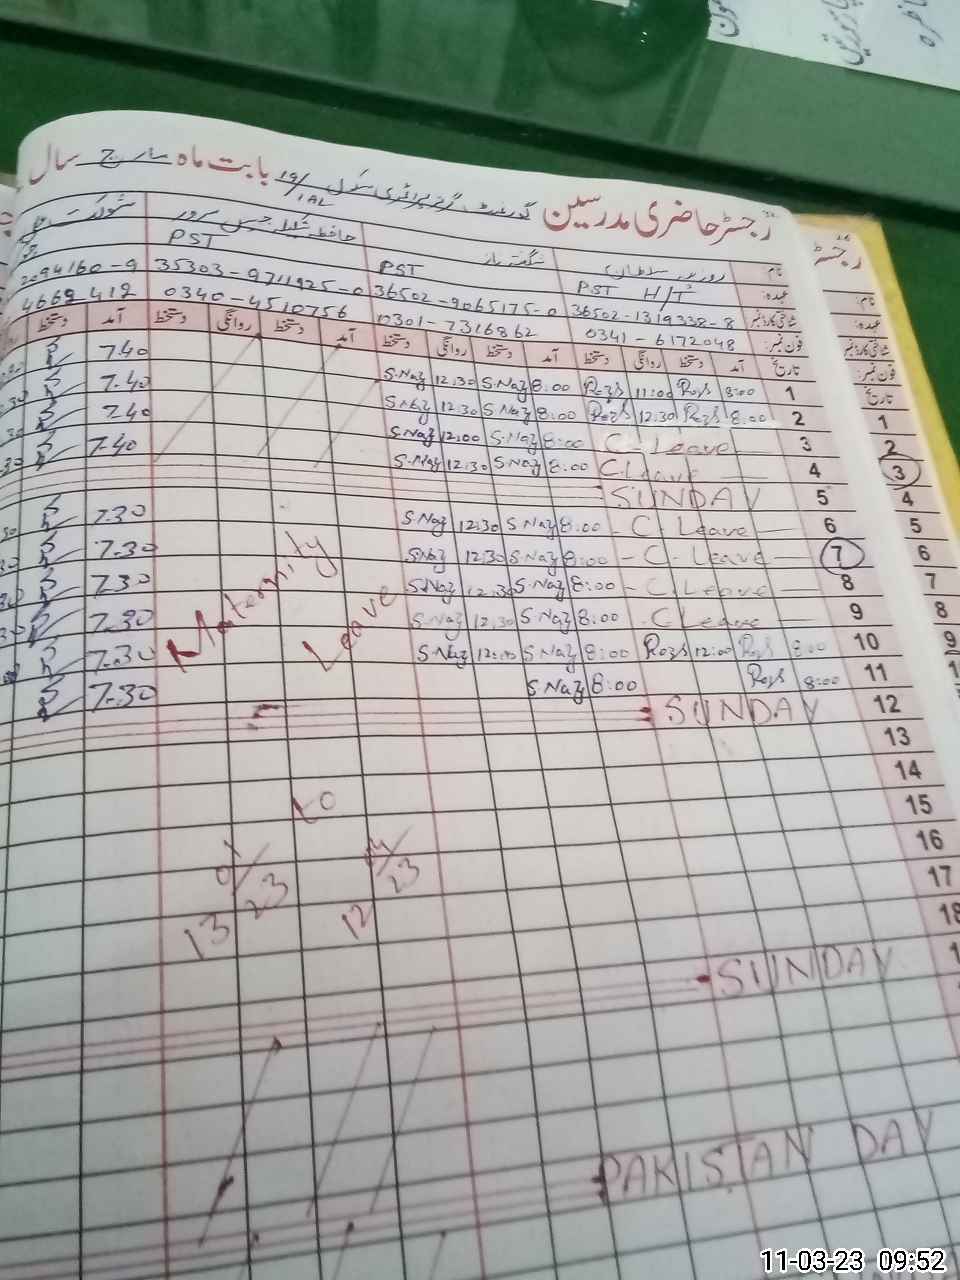 رجسٹر حاضری مدرسین گورنمنٹ گرلز پرائمری سکول 19/1AL بابت ماہ مارچ سال
نام روزینہ سلطانہ شگفتہ ناز
عہدہ: PST H/T PST PST
شناختی کارڈ نمبر 36502-1319338-8 36502-9065175-0 35303-9711925-0 2094160-9
فون نمبر: 0341-6172048 0301-7316862 0340-4510756 4669412
تاریخ آمد دستخط روانگی دستخط آمد دستخط روانگی دستخط آمد دستخط روانگی دستخط آمد دستخط
1 8:00 Rozs 11:00 Rozs 8:00 S.Naz 12:30 S.Naz 7.40
2 8:00 Rozs 12:30 Rozs 8:00 S.Naz 12:30 S.Naz 7.40
3 C-Leave 8:00 S.Naz 12:00 S.Naz 7.40
4 C.Leave 8:00 S.Naz 12:30 S.Naz 7.40
5 SUNDAY
6 C Leave 8:00 S.Naz 12:30 S.Naz 7.30
7 C-Leave 8:00 S.Naz 12:30 S.Naz 7.30
8 C Leave 8:00 S.Naz 12:30 S.Naz 7.30
9 C Leave 8:00 S.Naz 12:30 S.Naz 7.30
10 8:00 Rozs 12:00 Rozs 8:00 S.Naz 12:00 S.Naz 7.30
11 8:00 Rozs 8:00 S.Naz 7.30
Maternity Leave
12 SUNDAY
13
14
15
16
17
18
13 01/23 to 12 04/23
SUNDAY
PAKISTAN DAY
رجسٹر
نام:
عہدہ:
شناختی کارڈ نمبر
فون نمبر:
تاریخ
1
2
3
4
5
6
7
8
9
11-03-23 09:52